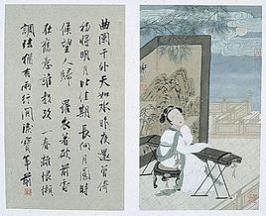 曲闌干外天如水昨夜還曾倚
初將明月比佳期長向月圓時
候望人歸 羅衣著破前香
在舊意誰教改一春離恨懶
調弦猶有兩行閒淚寶箏前